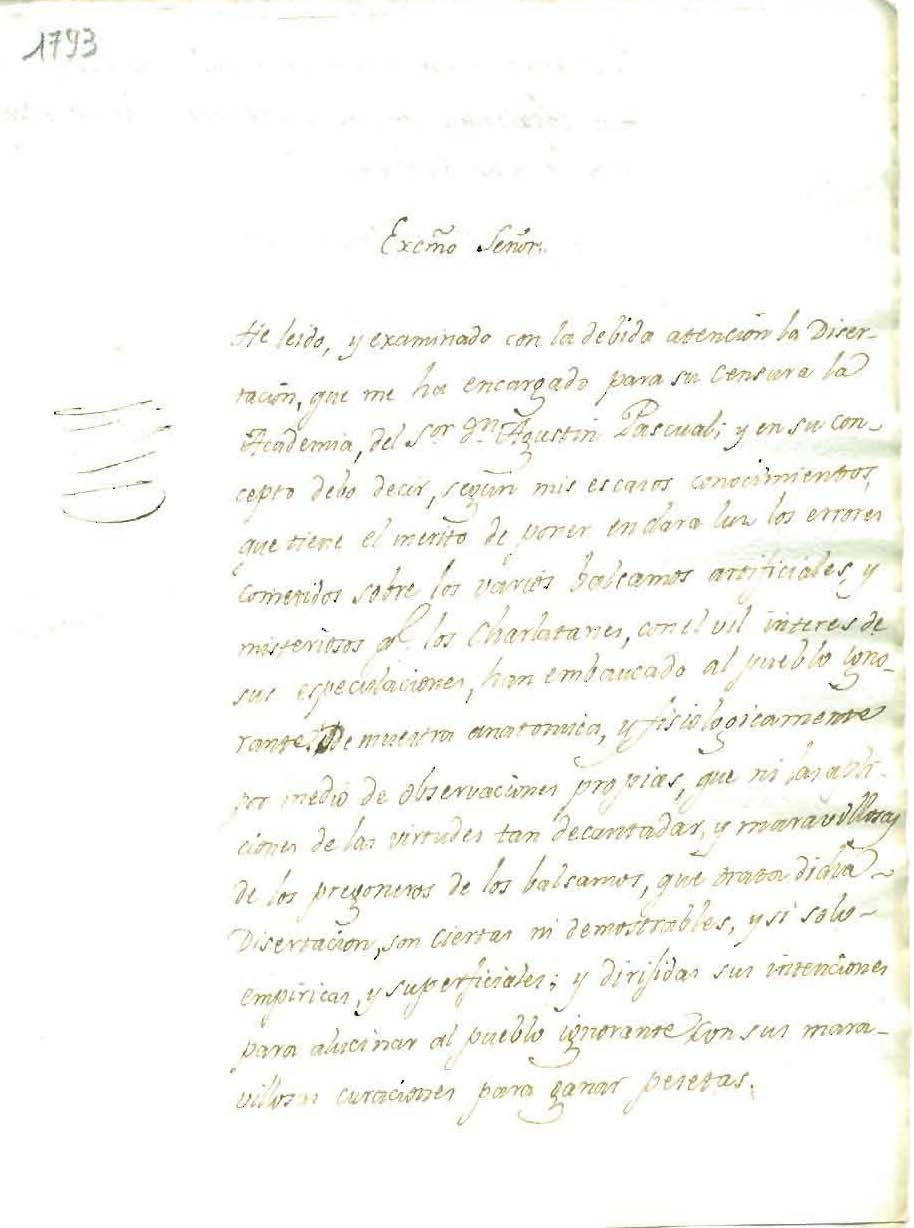 1793
Excmõ Señor.
He leido, y examinado con la debida atencion la Diser-
tacion, que me ha encargado para su Censura la
Academia, del Sor. Dn. Agustin Pascual; y en su con-
cepto debo decir, segun mis escasos conocimientos,
que tiene el merito de poner en clara luz los errores
cometidos sobre los varios balsamos artificiales, y
misteriosos ql. los Charlatanes, con el vil interes de
sus especulaciones, han embaucado al pueblo igno-
rante. Demuestra anatomica, y fisiologicamente
por medio de observaciones propias, que ni las
ciones de las virtudes tan decantadas, y maravillosas
de los pregoneros de los balsamos, que trata dicha
Disertacion, son ciertas ni demostrables, y si solo
empiricas, y superficiales; y dirijidas sus intenciones
para alucinar al pueblo ignorante con sus mara-
villosas curaciones para ganar pesetas.